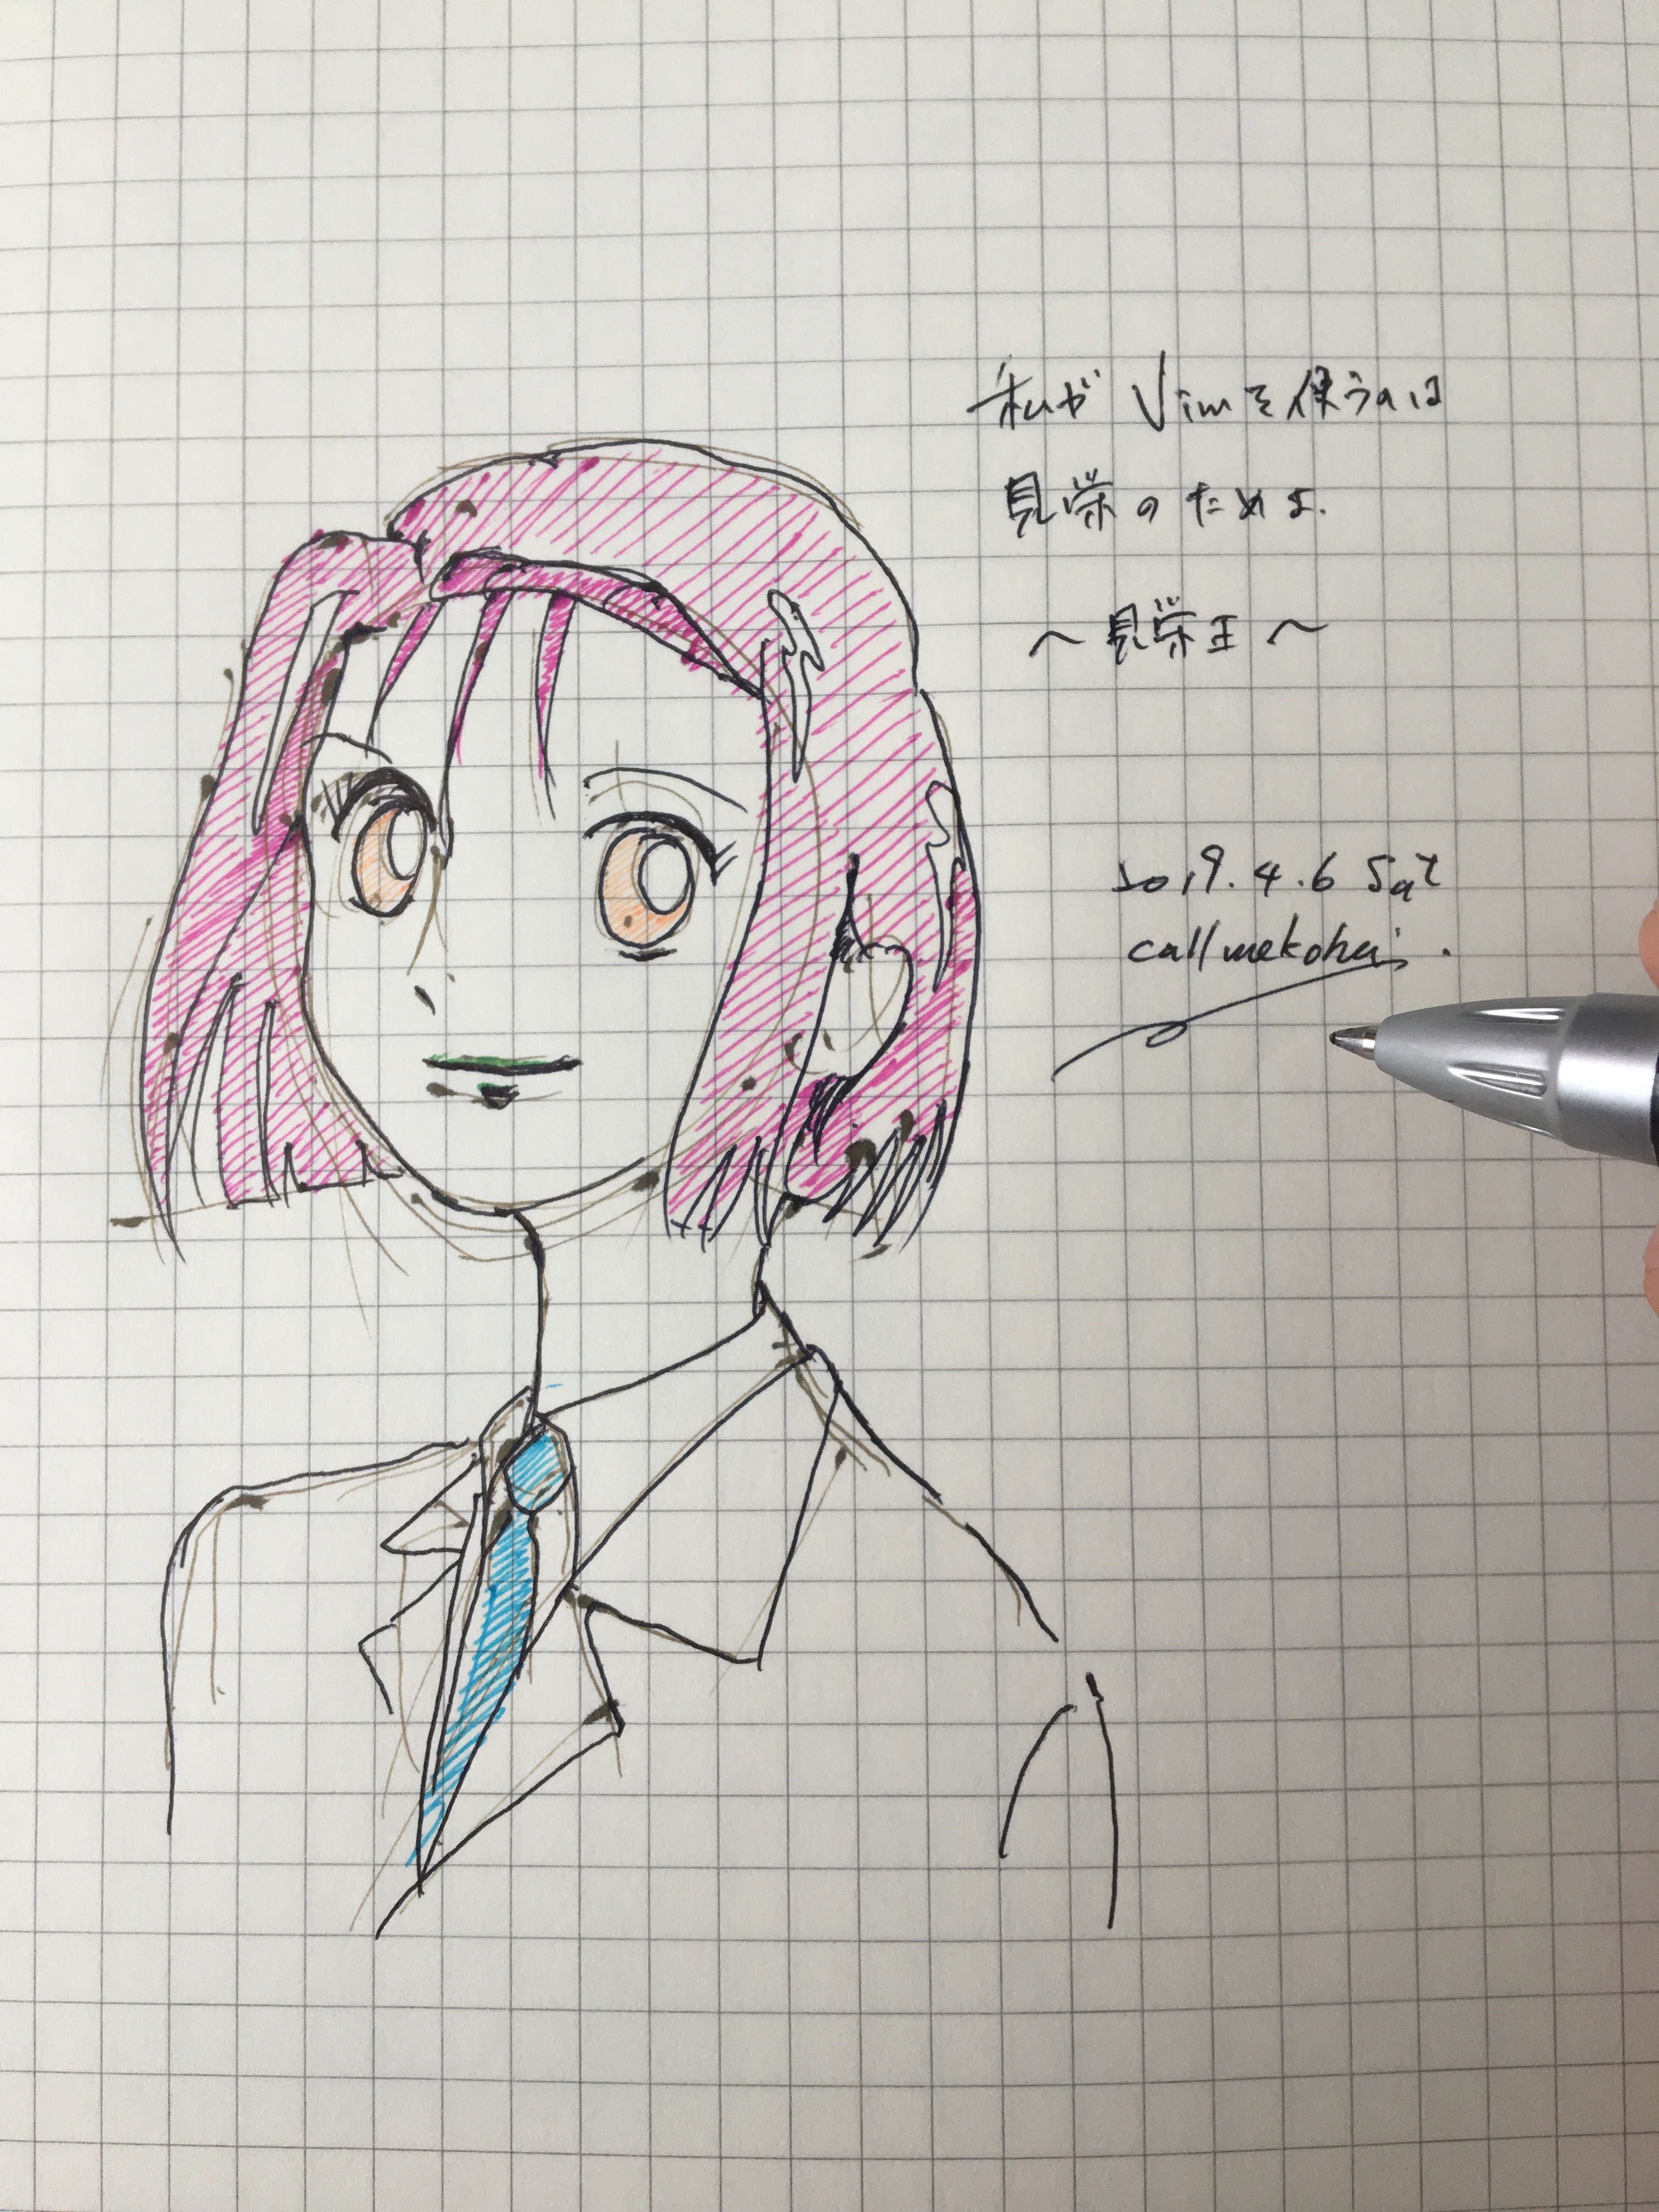 私が Vimを使うのは
見栄のためよ.
〜見栄王〜
2019.4.6 Sat
callmekohei.